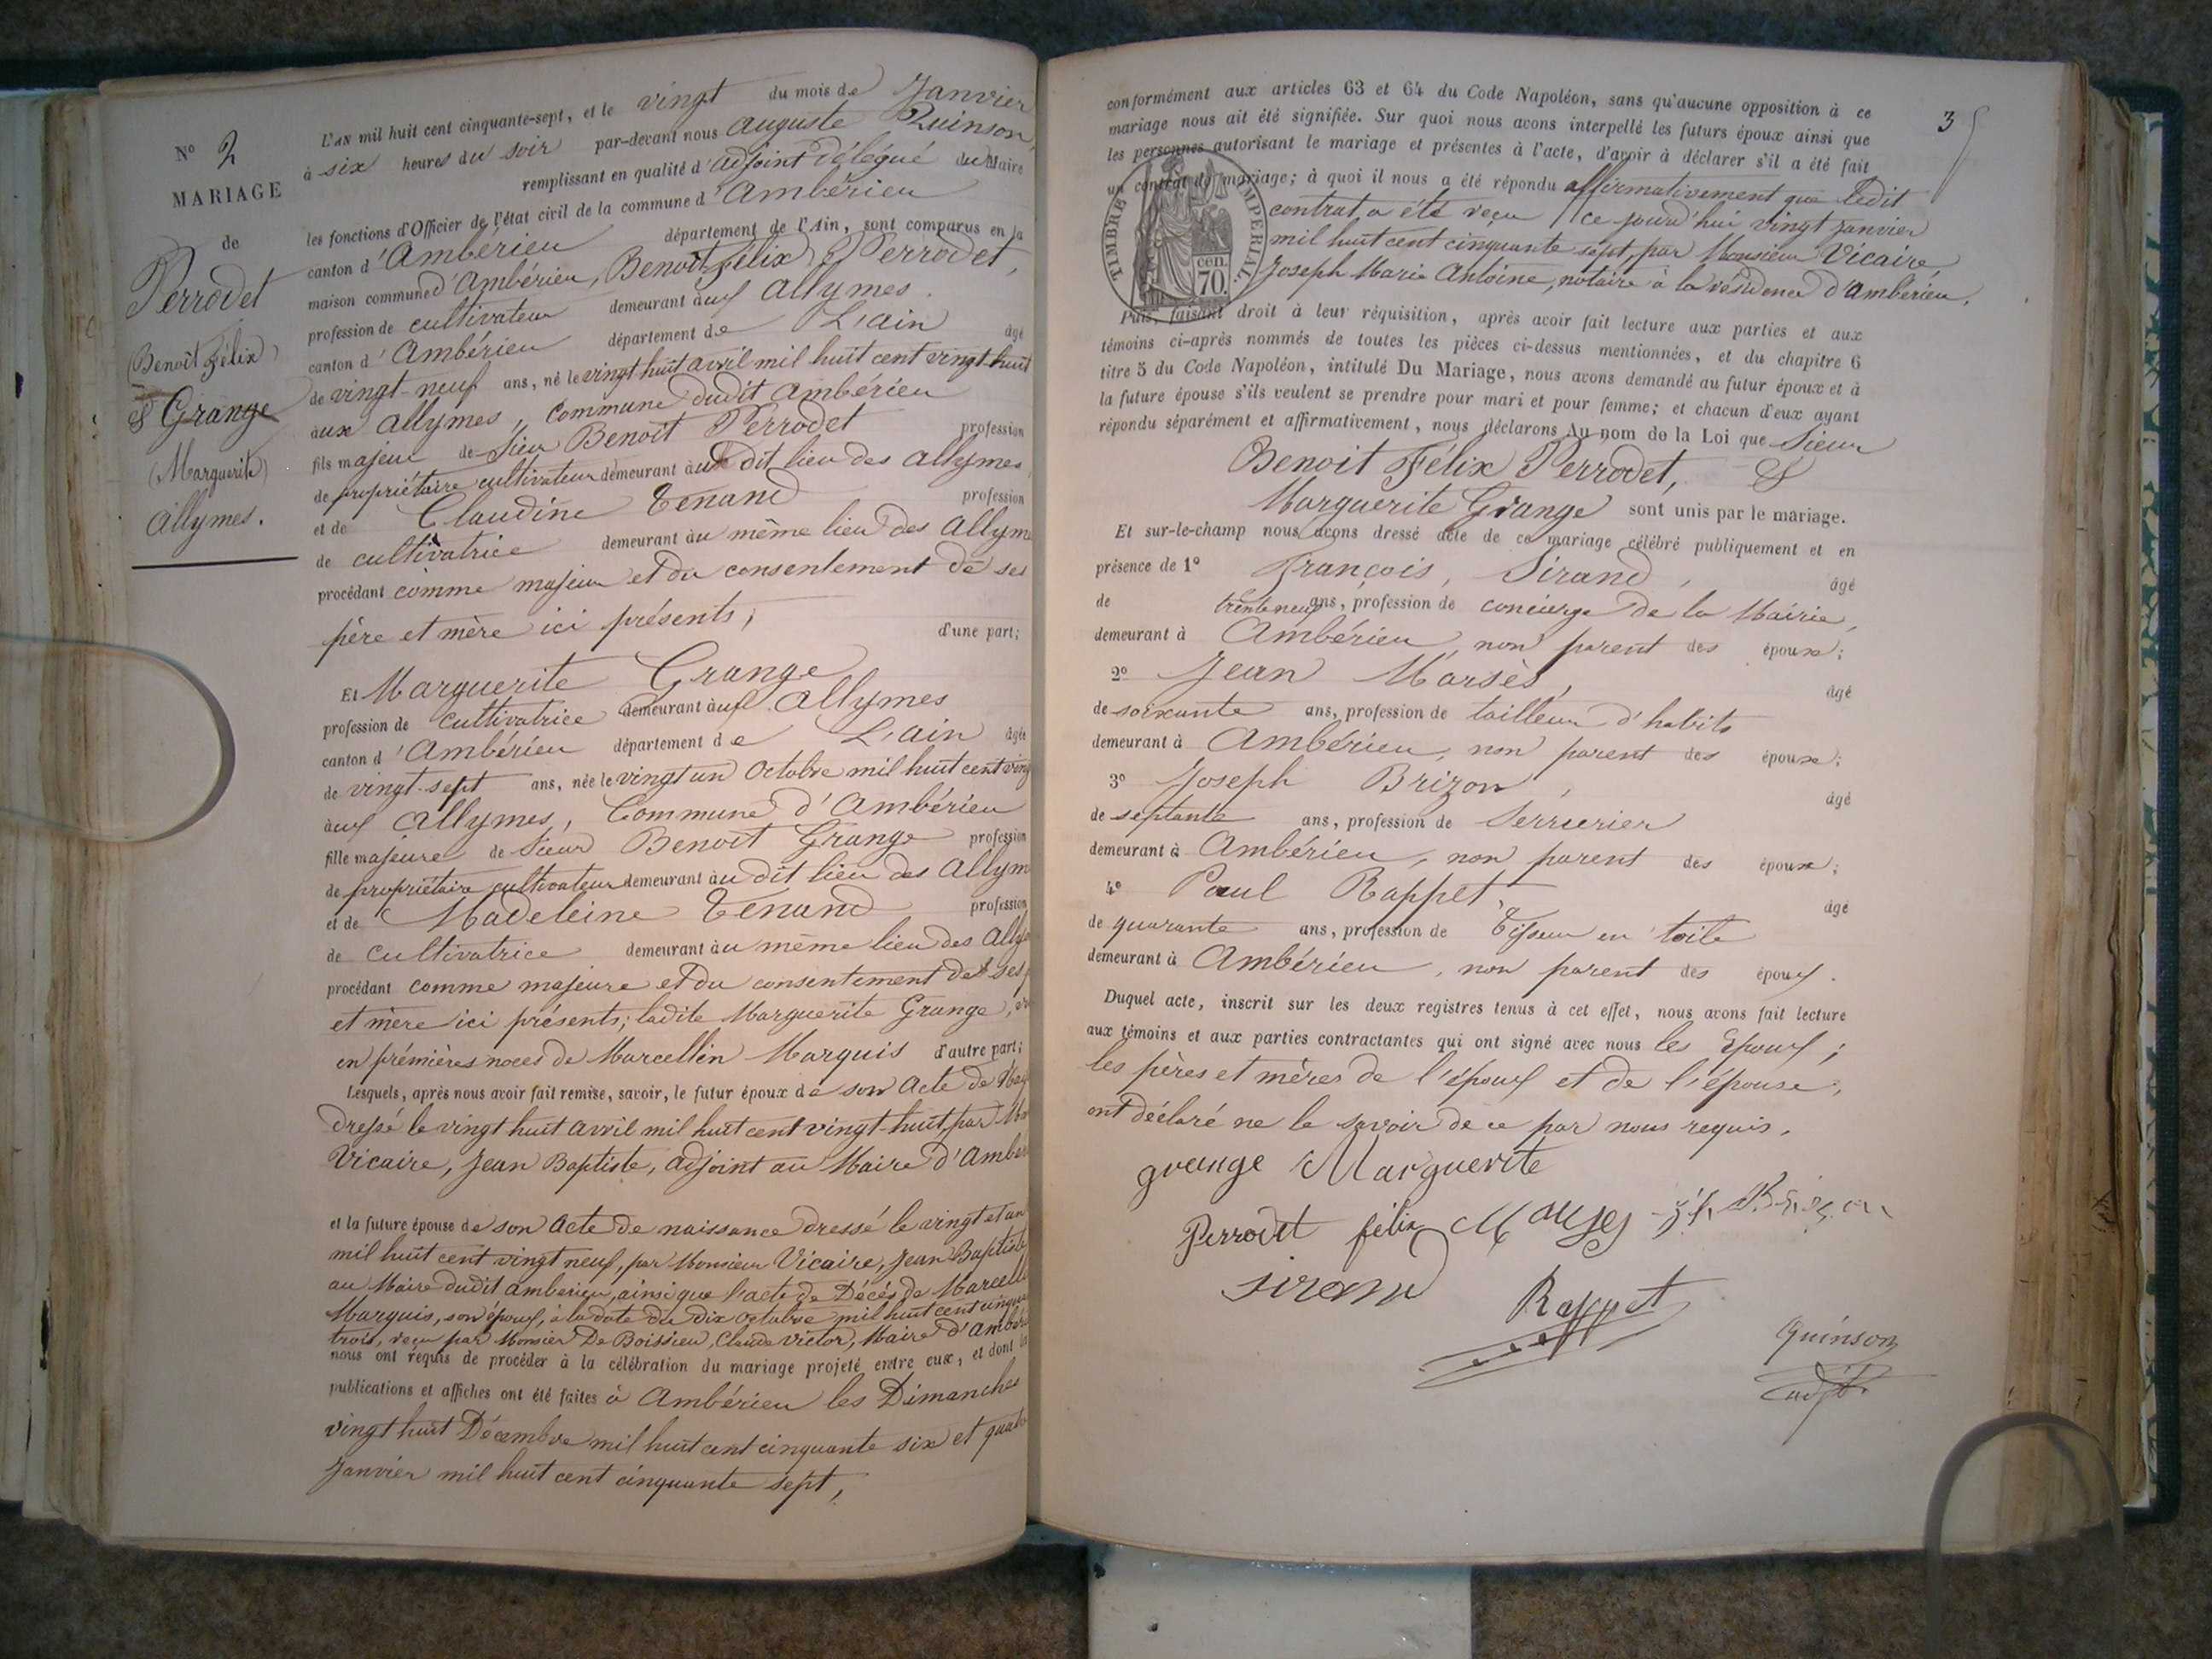 N° 2
MARIAGE
de
Perrodet
(Benoît Félix)
& Grange
(Marguerite)
Allymes.
L'AN mil huit cent cinquante-sept, et le vingt du mois de Janvier
à six heures du soir par-devant nous Auguste Quinson,
remplissant en qualité d'adjoint délégué du Maire
les fonctions d'Officier de l'état civil de la commune d'Ambérieu
canton d'Ambérieu département de l'Ain, sont comparus en la
maison commune d'Ambérieu, Benoît Félix Perrodet,
profession de cultivateur demeurant aux Allymes.
canton d'Ambérieu département de L'ain âgé
de vingt-neuf ans, né le vingt huit avril mil huit cent vingt huit
aux Allymes, Commune dudit Ambérieu
fils majeur de Sieur Benoît Perrodet profession
de propriétaire cultivateur demeurant au dit lieu des Allymes
et de Claudine Tenand profession
de cultivatrice demeurant au même lieu des Allym
procédant comme majeur et du consentement de ses
père et mère ici présents, d'une part;
Et Marguerite Grange
profession de cultivatrice demeurant aux Allymes
canton d'Ambérieu département de L'ain âgée
de vingt-sept ans, née le vingt un Octobre mil huit cent ving
aux Allymes, Commune d'Ambérieu
fille majeure de Sieur Benoît Grange profession
de propriétaire cultivateur demeurant au dit lieu des Allym
et de Madeleine Tenand profession
de cultivatrice demeurant au même lieu des Ally
procédant comme majeure et du consentement de ses
et mère ici présents; ladite Marguerite Grange,
en prémières noces de Marcellin Marquis d'autre part;
Lesquels, après nous avoir fait remise, savoir, le futur époux de son Acte de
dressé le vingt huit avril mil huit cent vingt-huit, par
Vicaire, Jean Baptiste, adjoint au Maire d'Ambér
et la future épouse de son Acte de naissance dressé le vingt et un
mil huit cent vingt neuf, par Monsieur Vicaire, Jean Baptiste
au Maire dudit Ambérieu, ainsi que l'acte de Décès de Marcelli
Marquis, son époux, à la date du dix Octobre mil huit cent cinqua
trois, reçu par Monsieur De Boissieu, Claude Victor, Maire d'Ambér
nous ont requis de procéder à la célébration du mariage projeté entre eux, et dont
publications et affiches ont été faites à Ambérieu les Dimanches
vingt huit Décembre mil huit cent cinquante six et quat
Janvier mil huit cent cinquante sept,
3
conformément aux articles 63 et 64 du Code Napoléon, sans qu'aucune opposition à ce
mariage nous ait été signifiée. Sur quoi nous avons interpellé les futurs époux ainsi que
les personnes autorisant le mariage et présentes à l'acte, d'avoir à déclarer s'il a été fait
un contrat de mariage; à quoi il nous a été répondu affirmativement que ledit
contrat a été reçu ce jourd'hui vingt janvier
mil huit cent cinquante sept, par Monsieur Vicaire,
Joseph Marie Antoine, notaire à la résidence d'Ambérieu.
TIMBRE IMPÉRIAL.
cen.
70.
Puis, faisant droit à leur réquisition, après avoir fait lecture aux parties et aux
témoins ci-après nommés de toutes les pièces ci-dessus mentionnées, et du chapitre 6
titre 5 du Code Napoléon, intitulé Du Mariage, nous avons demandé au futur époux et à
la future épouse s'ils veulent se prendre pour mari et pour femme; et chacun d'eux ayant
répondu séparément et affirmativement, nous déclarons Au nom de la Loi que Sieur
Benoit Félix Perrodet, &
Marguerite Grange sont unis par le mariage.
Et sur-le-champ nous avons dressé acte de ce mariage célébré publiquement et en
présence de 1° François, Sirand, âgé
de trente neuf ans, profession de concierge de la Mairie,
demeurant à Ambérieu, non parent des époux;
2° Jean Marsès, âgé
de soixante ans, profession de tailleur d'habits
demeurant à Ambérieu, non parent des époux;
3° Joseph Brizon, âgé
de septante ans, profession de Serrurier
demeurant à Ambérieu, non parent des époux;
4° Paul Rappet, âgé
de quarante ans, profession de Tisseur en toile
demeurant à Ambérieu, non parent des époux.
Duquel acte, inscrit sur les deux registres tenus à cet effet, nous avons fait lecture
aux témoins et aux parties contractantes qui ont signé avec nous les Epoux;
les pères et mères de l'époux et de l'épouse,
ont déclaré ne le savoir de ce par nous requis.
grange Marguerite
Perrodet félix
sirand Rappet
Quinson
adjt.